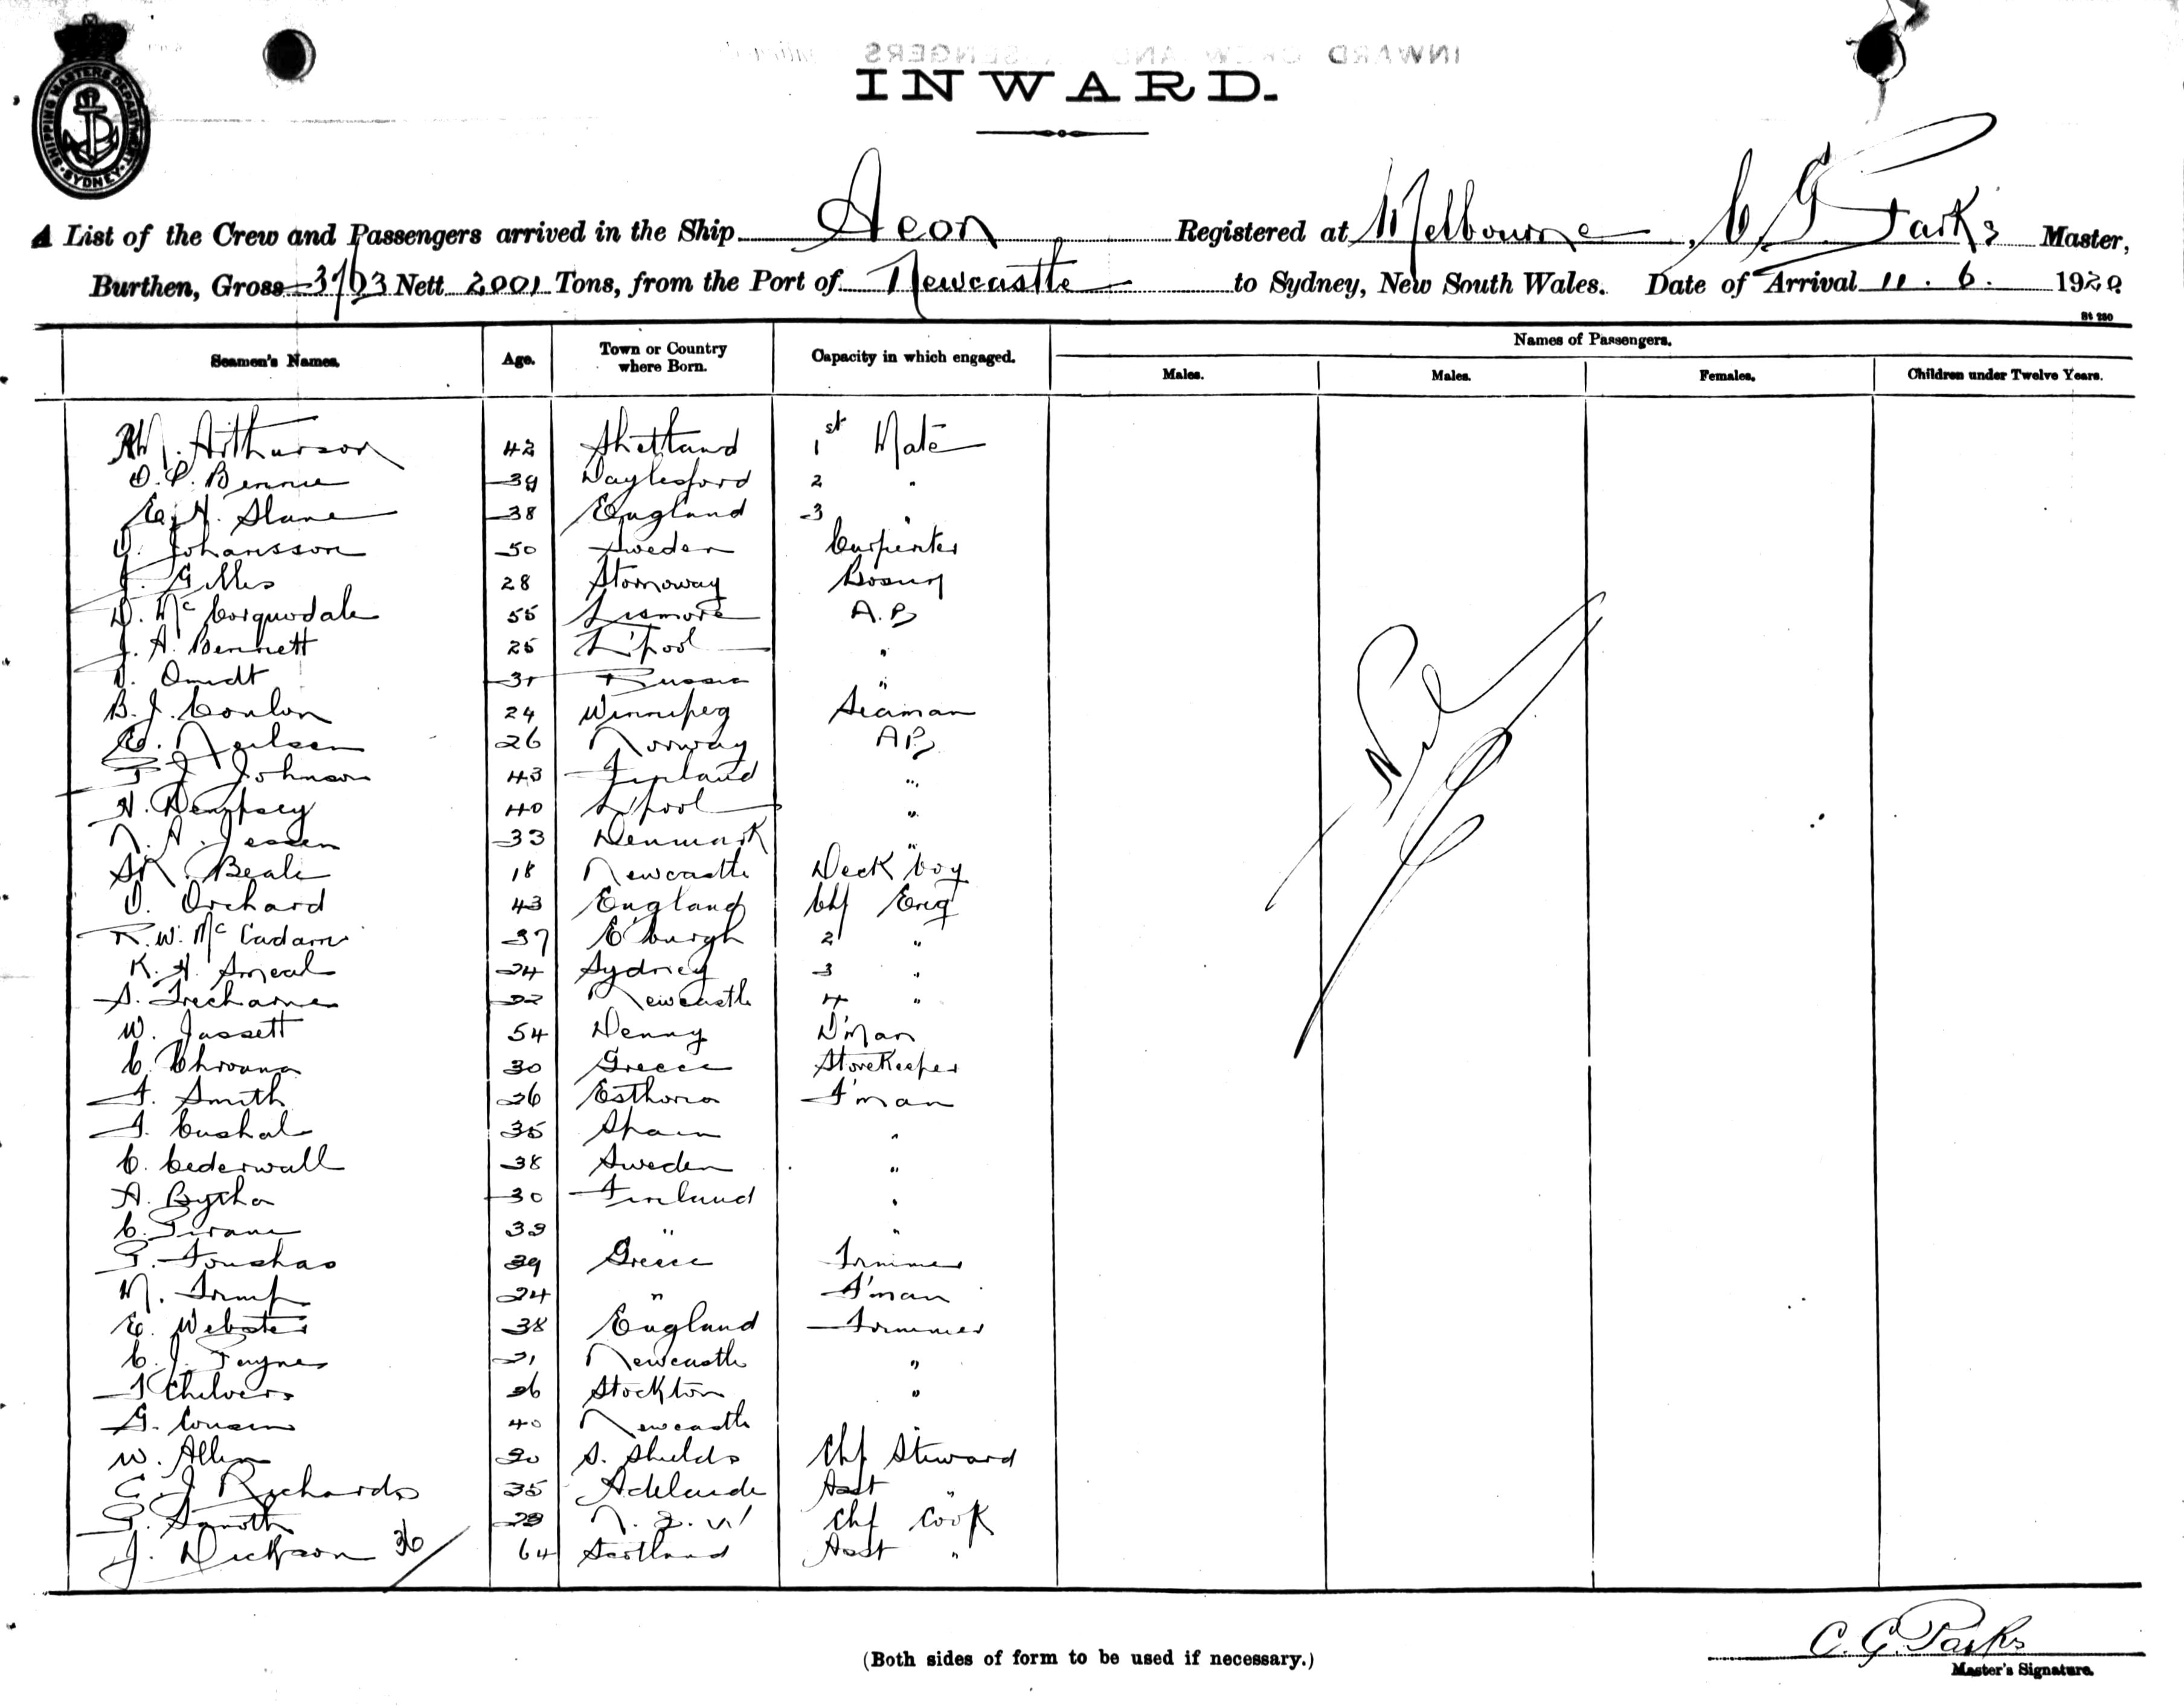 INWARD CREW AND PASSENGERS
SHIPPING MASTERS DEPARTMENT SYDNEY
INWARD.
A List of the Crew and Passengers arrived in the Ship Aeon Registered at Melbourne, C G Parks Master,
Burthen, Gross 3763 Nett 2001 Tons, from the Port of Newcastle to Sydney, New South Wales. Date of Arrival 11.6. 1920
St 280
Seamen's Names. Age. Town or Country where Born. Capacity in which engaged. Names of Passengers.
Males. Males. Females. Children under Twelve Years.
Arthurson 42 Shetland 1st Mate
D. P. Bennie 39 Daylesford 2 "
E. H. Slane 38 England 3 "
Johansson 50 Sweden Carpenter
J. Gillies 28 Stornoway Bosun
D. Mc Corquodale 55 Lismore A.B
J. A. Bennett 25 L'pool "
Omidt 31 Russia "
B. J. Conlon 24 Winnipeg Seaman
E. Neilsen 26 Norway AB
J. Johnson 43 Finland "
H. Dempsey 40 L'pool "
N. A. Jessen 33 Denmark "
Beale 18 Newcastle Deck boy
O. Orchard 43 England Chf Eng
R. W. Mc Cadam 37 E'burgh 2 "
K. H. Smeal 24 Sydney 3 "
S. Trecharne 22 Newcastle 4 "
W. Jassett 54 Denny D'man
C. 30 Greece Storekeeper
F. Smith 26 Esthonia F'man
35 Spain "
C. Cederwall 38 Sweden "
A. Bytha 30 Finland "
C. 33 " "
39 Greece Trimmer
24 " F'man
E. Webster 38 England Trimmer
C. J. Payne 21 Newcastle "
Chilvers 26 Stockton "
G. Cousin 40 Newcastle "
W. Allen 30 S. Shields Chf Steward
C. J. Richards 35 Adelaide Asst "
Smith Chf Cook
J. Dickson 36 64 Scotland Asst "
Nil
C. G. Parks
Master's Signature.
(Both sides of form to be used if necessary.)